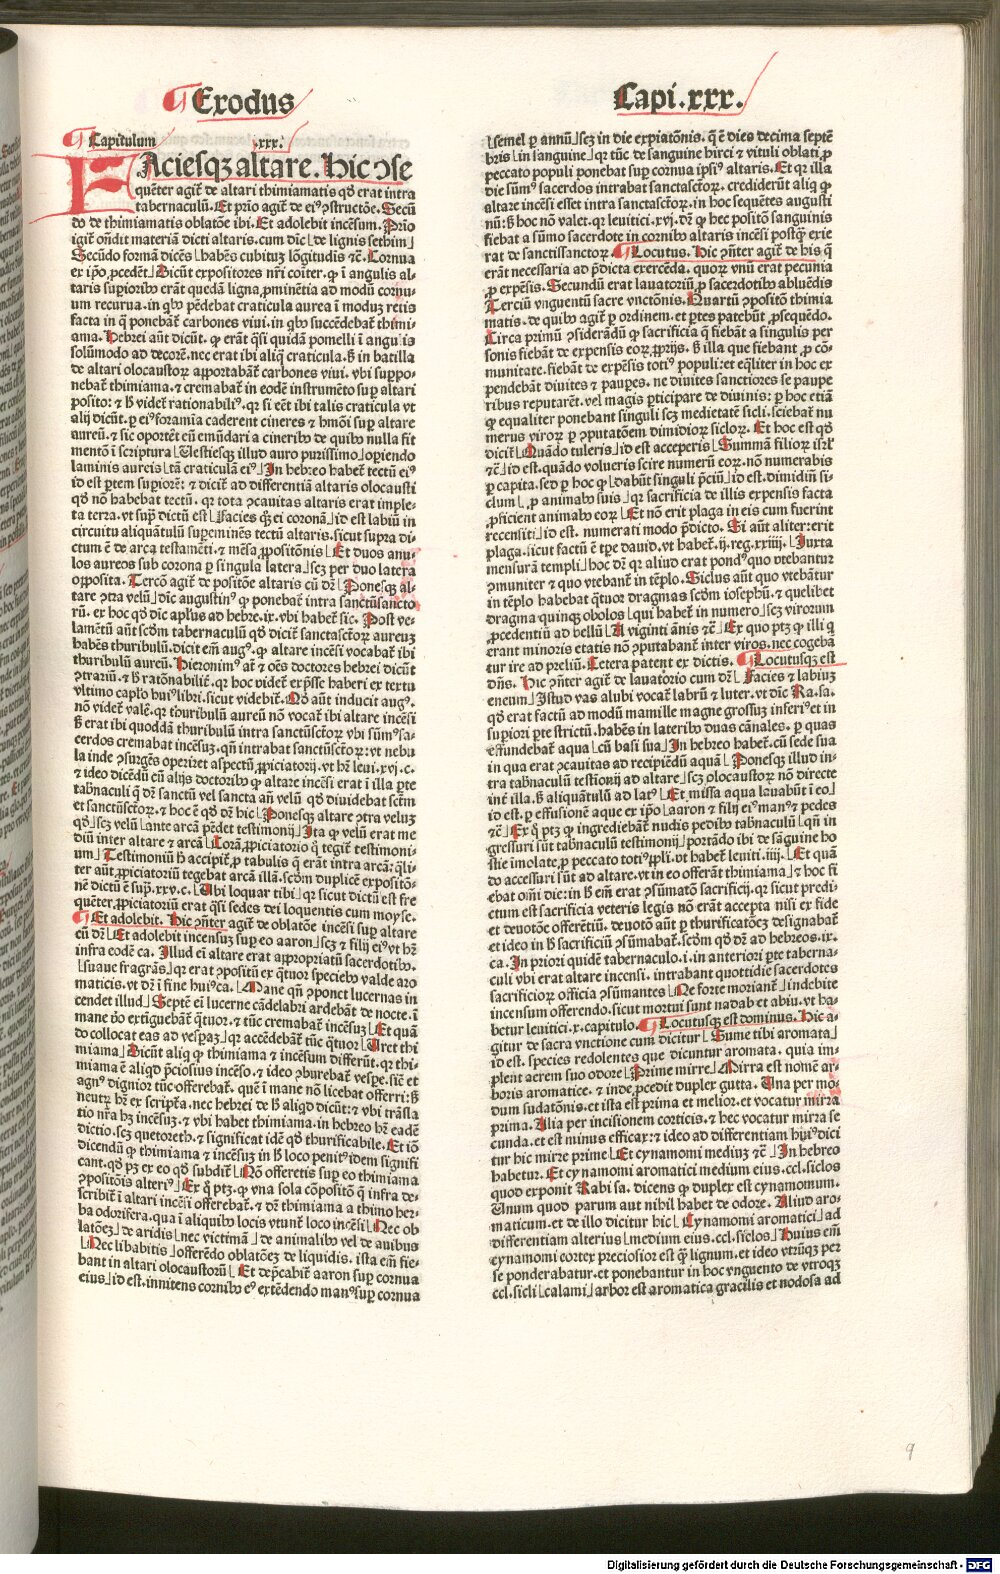 Exodus
Capi. xxx.
Capitulum .xxx.
FAciesqꝫ altare. Hic ↄ̃se
quēter agit̃ de altari thimiamatis qḋ erat intra
tabernaculū. Et prīo agit̃ de eiꝰ ↄstructōe. Secū
do de thimiamatis oblatōe ibi. Et adolebit incēsum. Prīo
igit̃ oñdit materiā dicti altaris. cum dic̄ ⌊de lignis sethim⌋
Secūdo formā dicēs ⌊habēs cubituꝫ lōgitudīs ⁊c̄. Cornua
ex ip̄o ꝓcedēt⌋ Dicūt expositores nr̄i cōiter. ꝙ ī angulis al⸗
taris superiorib erāt quedā ligna ꝓminētia ad modū cornu⸗
um recurua. in qb pēdebat craticula aurea ī moduꝫ retis
facta in q̄ ponebāt̃ carbones viui. in qb succēdebat̃ thimi⸗
ama. Hebrei aūt dicūt. ꝙ erāt q̄si quidā pomelli ī angulis
solūmodo ad decorē. nec erat ibi aliq̄ craticula. S̄ in batilla
de altari olocaustoꝝ apportabāt̃ carbones viui. vbi suppo⸗
nebat̃ thimiama. ⁊ cremabat̃ in eodē instrumēto sup̱ altari
posito: ⁊ h̄ videt̃ rationabiliꝰ. qꝛ si eēt ibi talis craticula vt
alij dicūt. ꝑ eiꝰ foramīa caderent cineres ⁊ hmōi sup̱ altare
aureū. ⁊ sic oportēt eū emūdari a cinerib de quib nulla fit
mentō ī scriptura ⌊Uestiesqꝫ illud auro purissimo⌋ opiendo
laminis aureis ⌊tā craticulā eiꝰ⌋ In hebreo habet̃ tectū eiꝰ
id est ꝑtem supiorē: ⁊ dicit̃ ad differentiā altaris olocausti
qḋ nō habebat tectū. qꝛ tota ↄcauitas altaris erat imple⸗
ta terra. vt sup̄ dictū est ⌊Facies qꝫ ei coronā⌋ id est labiū in
circuitu aliquātulū superminēs tectū altaris. sicut supra di⸗
ctum ē de arca testamēti. ⁊ mēsa ꝓpositōnis ⌊Et duos anu⸗
los aureos sub corona ꝑ singula latera⌋ scꝫ per duo latera
opposita. Tercō agit̃ de positōe altaris cū dr̄ ⌊Ponesqꝫ al⸗
tare ↄtra velū⌋ dic̄ augustinꝰ ꝙ ponebat̃ intra sanctūsancto
rū. ex hoc qḋ dic̄ apl̄us ad hebre. ix. vbi habet̃ sic. Post ve⸗
lamētū aūt scdm̄ tabernaculū qḋ dicit̃ sanctascto̅ꝝ aureuꝫ
habēs thuribulū. dicit em̄ augꝰ. ꝙ altare incēsi vocabat̃ ibi
thuribulū aureū. Hieronimꝰ āt ⁊ oēs doctores hebrei dicūt
ↄtrariū. ⁊ h̄ ratōnabilit̃. qꝛ hoc videt̃ exp̄sse haberi ex textu
vltimo capl̄o huiꝰ libri. sicut videbit̃. Qḋ aūt inducit augꝰ.
nō videt̃ valē. qꝛ thuribulū aureū nō vocat̃ ibi altare incēsi
s̄ erat ibi quoddā thuribulū intra sanctūscto̅ꝝ vbi sūmꝰ sa⸗
cerdos cremabat incēsuꝫ. qn̄ intrabat sanctūscto̅ꝝ: vt nebu
la inde ↄsurgēs operiret aspectū ꝓpiciatorij. vt hr̄ leui. xvj. c.
⁊ ideo dicēdū cū alijs doctorib ꝙ altare incēsi erat ī illa ꝑte
tabn̄aculi q̄ dr̄ sanctū vel sancta an̄ velū qḋ diuidebat sctm̄
et sanctūscto̅ꝝ. ⁊ hoc ē qḋ dr̄ hic ⌊Ponesqꝫ altare ↄtra veluꝫ
qḋ⌋ scꝫ velū ⌊ante arcā pēdet testimonij⌋ Ita ꝙ velū erat me
diū inter altare ⁊ arcā ⌊Corā ꝓpiciatorio q̄ tegit̃ testimoni⸗
um⌋ Testimoniū h̄ accipit̃ ꝓ tabulis q̄ erāt intra arcā: q̄li⸗
ter aūt ꝓpiciatoriū tegebat arcā illā. scdm̄ duplicē expositō⸗
nē dictū ē sup̄. xxv. c. ⌊Ubi loquar tibi⌋ qꝛ sicut dictū est fre
quēter ꝓpiciatoriū erat q̄si sedes dei loquentis cum moyse.
Et adolebit. Hic ↄn̄ter agit̃ de oblatōe incēsi sup̱ altare
cū dr̄ ⌊Et adolebit incensuꝫ sup̱ eo aaron⌋ scꝫ ⁊ filij eiꝰ vt hr̄
infra eodē ca. Illud em̄ altare erat appropriatū sacerdotib.
⌊suaue fragrās⌋ qꝛ erat ↄpositū ex q̄tuor specieb valde aro
maticis. vt dr̄ ī fine huiꝰ ca. ⌊Mane qn̄ ↄponet lucernas in
cendet illud⌋ Septē em̄ lucerne cādelabri ardebāt de nocte. ī
mane ↄo extiguebāt̃ q̄tuor. ⁊ tūc cremabat̃ incēsuꝫ ⌊Et quā
do collocat eas ad vesp̱aꝫ⌋ qꝛ accēdebāt̃ tūc q̄tuor ⌊Uret thi
miama⌋ Dicūt aliq̄ ꝙ thimiama ⁊ incēsum differūt. qꝛ thi⸗
miama ē aliqḋ p̄ciosius incēso. ⁊ ideo ↄburebat̃ vesp̱e. sic̄ et
agnꝰ dignior tūc offerebat̃. quē ī mane nō licebat offerri: s̄
neutꝝ hr̄ ex scriptᵃ. nec hebrei de h̄ aliqḋ dicūt: ⁊ vbi trāsla
tio nr̄a hꝫ incēsuꝫ. ⁊ vbi habet thimiama. in hebreo hr̄ eadē
dictio. scꝫ quetoreth. ⁊ significat idē qḋ thurificabile. Et iō
dicendū ꝙ thimiama ⁊ incēsuꝫ in h̄ loco penitꝰ idem signifi
cant. qḋ pꝫ ex eo qḋ subdit̃ ⌊Nō offeretis sup̱ eo thimiama
ↄpositōis alteriꝰ⌋ Ex q̄ ptꝫ. ꝙ vna sola cōpositō q̄ infra de⸗
scribit̃ ī altari incēsi offerebat̃. ⁊ dr̄ thimiama a thimo her⸗
ba odorifera. qua ī aliquib locis vtunt̃ loco incēsi ⌊Nec ob
latōeꝫ⌋ de aridis ⌊nec victimā⌋ de animalib vel de auibus
⌊Nec libabitis⌋ offerēdo oblatōeꝫ de liquidis. ista em̄ fie⸗
bant in altari olocaustorū ⌊Et dep̄cabit̃ aaron sup̱ cornua
eius⌋ id est. innitens cornib eꝰ extēdendo manꝰ sup̱ cornua
⌊semel ꝑ annū⌋ scꝫ in die expiatōnis. q̄ ē dies decima septē
bris ⌊in sanguine⌋ qꝛ tūc de sanguine hirci ⁊ vituli oblati ꝓ
peccato populi ponebat sup̱ cornua ip̄siꝰ altaris. Et qꝛ illa
die sūmꝰ sacerdos intrabat sanctascto̅ꝝ. crediderūt aliq̄ ꝙ
altare incēsi esset intra sanctascto̅ꝝ. in hoc sequētes augusti
nū: s̄ hoc nō valet. qꝛ leuitici. xvj. dr̄ ꝙ hec positō sanguinis
fiebat a sūmo sacerdote in cornib altaris incēsi postꝙ̄ exie
rat de sanctissanctoꝝ. Locutus. Hic ↄn̄ter agit̃ de his q̄
erāt necessaria ad p̄dicta exercēda. quoꝝ vnū erat pecunia
ꝓ expēsis. Secundū erat lauatoriū ꝓ sacerdotib abluēdis
Terciū vnguentū sacre vnctōnis. Quartū ↄpositō thimia
matis. de quib agit̃ ꝑ ordinem. et ꝑtes patebūt ꝓsequēdo.
Circa primū ↄsiderādū ꝙ sacrificia q̄ fiebāt a singulis per
sonis fiebāt de expensis eoꝝ ꝓprijs. s̄ illa que fiebant ꝓ cō⸗
munitate. fiebāt de expēsis totiꝰ populi: et eq̄liter in hoc ex
pendebāt diuites ⁊ pauꝑes. ne diuites sanctiores se paupe
ribus reputarēt. vel magis ꝑticipare de diuinis: ꝑ hoc etiā
ꝙ equaliter ponebant singuli scꝫ medietatē sicli. sciebat̃ nu
merus viroꝝ ꝑ ↄputatōem dimidioꝝ sicloꝝ. Et hoc est qḋ
dicit̃ ⌊Quādo tuleris⌋ id est acceperis ⌊Summā filioꝝ isrl̄
⁊c̄⌋ id est. quādo volueris scire numerū eoꝝ. nō numerabis
ꝑ capita. sed ꝑ hoc ꝙ ⌊dabūt singuli p̄ciū⌋ id est. dimidiū si⸗
clum ⌊ꝓ animab suis⌋ qꝛ sacrificia de illis expensis facta
ꝓficient animab eoꝝ ⌊Et nō erit plaga in eis cum fuerint
recensiti⌋ id est. numerati modo p̄dicto. Si aūt aliter: erit
plaga. sicut factū ē tꝑe dauid. vt habet̃. ij. reg. xxiiij. ⌊Iuxta
mensurā templi⌋ hoc dr̄ qꝛ aliud erat pondꝰ quo vtebantur
ↄmuniter ⁊ quo vtebant̃ in tēplo. Siclus aūt quo vtebātur
in tēplo habebat q̄tuor dragmas scdm̄ iosephū. ⁊ quelibet
dragma quinqꝫ obolos ⌊qui habet̃ in numero⌋ scꝫ virorum
ꝓcedentiū ad bellū ⌊A viginti ānis ⁊c̄⌋ Ex quo ptꝫ ꝙ illi q̄
erant minoris etatis nō ↄputabant̃ inter viros. nec cogebā
tur ire ad preliū. Cetera patent ex dictis. Locutusqꝫ est
dn̄s. Hic ↄn̄ter agit̃ de lauatorio cum dr̄ ⌊Facies ⁊ labiuꝫ
eneum⌋ Istud vas alubi vocat̃ labrū ⁊ luter. vt dic̄ Ra. sa.
qḋ erat factū ad modū mamille magne grossuꝫ inferiꝰ et in
superiori ꝑte strictū. habēs in laterib duas cānales. ꝑ quas
effundebat̃ aqua ⌊cū basi sua⌋ In hebreo habet̃. cū sede sua
in qua erat ↄcauitas ad recipiēdū aquā ⌊Ponesqꝫ illud in⸗
tra tabn̄aculū testiorij ad altare⌋ scꝫ olocaustoꝝ nō directe
inē illa. s̄ aliquātulū ad latꝰ ⌊Et missa aqua lauabūt ī eo⌋
id est. ꝑ effusionē aque ex ip̄o ⌊aaron ⁊ filij eiꝰ manꝰ ⁊ pedes
⁊c̄⌋ Ex q̄ ptꝫ ꝙ ingrediebāt̃ nudis pedib tabn̄aculū ⌊qn̄ in
gressuri sūt tabn̄aculū testimonij⌋ portādo ibi de sāguine ho
stie imolate. ꝓ peccato totiꝰ ppl̄i. vt habet̃ leuiti. iiij. ⌊Et quā
do accessuri sūt ad altare. vt in eo offerāt thimiama⌋ ⁊ hoc fi
ebat om̄i die: in h̄ em̄ erat ↄsūmatō sacrificij. qꝛ sicut predi⸗
ctum est sacrificia veteris legis nō erāt accepta nisi ex fide
et deuotōe offerētiū. deuotō aūt ꝑ thurificatōeꝫ designabat̃
et ideo in h̄ sacrificiū ↄsūmabat̃. scdm̄ qḋ dr̄ ad hebreos. ix.
ca. In priori quidē tabernaculo. i. in anteriori ꝑte taberna⸗
culi vbi erat altare incensi. intrabant quottidie sacerdotes
sacrificioꝝ officia ↄsūmantes ⌊Ne forte moriant̃⌋ indebite
incensum offerendo. sicut mortui sunt nadab et abiu. vt ha⸗
betur leuitici. x. capitulo. Locutusqꝫ est dominus. Hic a⸗
gitur de sacra vnctione cum dicitur ⌊Sume tibi aromata⌋
id est. species redolentes que dicuntur aromata. quia im⸗
plent aerem suo odore ⌊Prime mirre⌋ Mirra est nomē ar⸗
boris aromatice. ⁊ inde ꝓcedit duplex gutta. Una per mo⸗
dum sudatōnis. et ista est prima et melior. et vocatur mirra
prima. Alia per incisionem corticis. ⁊ hec vocatur mirra se
cunda. et est minus efficax: ⁊ ideo ad differentiam huiꝰ dici
tur hic mirre prime ⌊Et cynamomi mediuꝫ ⁊c̄⌋ In hebreo
habetur. Et cynamomi aromatici medium eius. ccl. siclos
quod exponit Rabi sa. dicens ꝙ duplex est cynamomum.
Unum quod parum aut nihil habet de odore. Aliud aro⸗
maticum. et de illo dicitur hic ⌊Cynamomi aromatici⌋ ad
differentiam alterius ⌊medium eius. ccl. siclos⌋ Huius em̄
cynamomi cortex preciosior est ꝙ̄ lignum. et ideo vtrūqꝫ per
se ponderabatur. et ponebantur in hoc vnguento de vtroqꝫ
ccl. sicli ⌊calami⌋ arbor est aromatica gracilis et nodosa ad
9
Digitalisierung gefördert durch die Deutsche Forschungsgemeinschaft - DFG